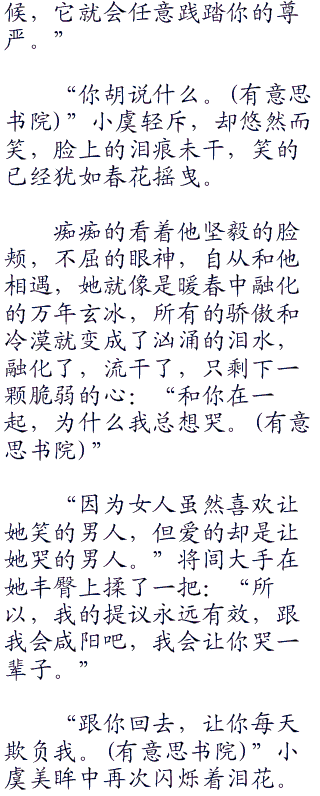 候，它就会任意践踏你的尊
严。”
“你胡说什么。(有意思
书院)”小虞轻斥，却悠然而
笑，脸上的泪痕未干，笑的
已经犹如春花摇曳。
痴痴的看着他坚毅的脸
颊，不屈的眼神，自从和他
相遇，她就像是暖春中融化
的万年玄冰，所有的骄傲和
冷漠就变成了汹涌的泪水，
融化了，流干了，只剩下一
颗脆弱的心：“和你在一
起，为什么我总想哭。(有意
思书院)”
“因为女人虽然喜欢让
她笑的男人，但爱的却是让
她哭的男人。”将闾大手在
她丰臀上揉了一把：“所
以，我的提议永远有效，跟
我会咸阳吧，我会让你哭一
辈子。”
“跟你回去，让你每天
欺负我。(有意思书院)”小
虞美眸中再次闪烁着泪花。